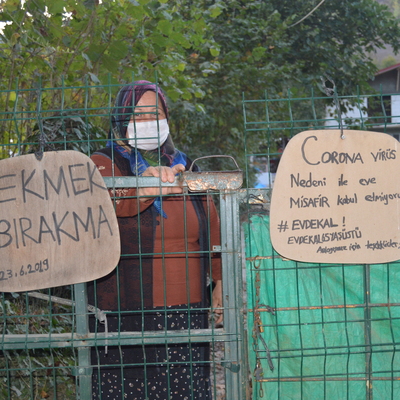 EKMEK
BIRAKMA
23.6.2019
CORONA VİRÜS
Nedeni ile eve
MİSAFİR kabul edilmiyor
#EVDEKAL!
EVDEKALISYASÜSTÜ
Anlayışınız için teşekkürler